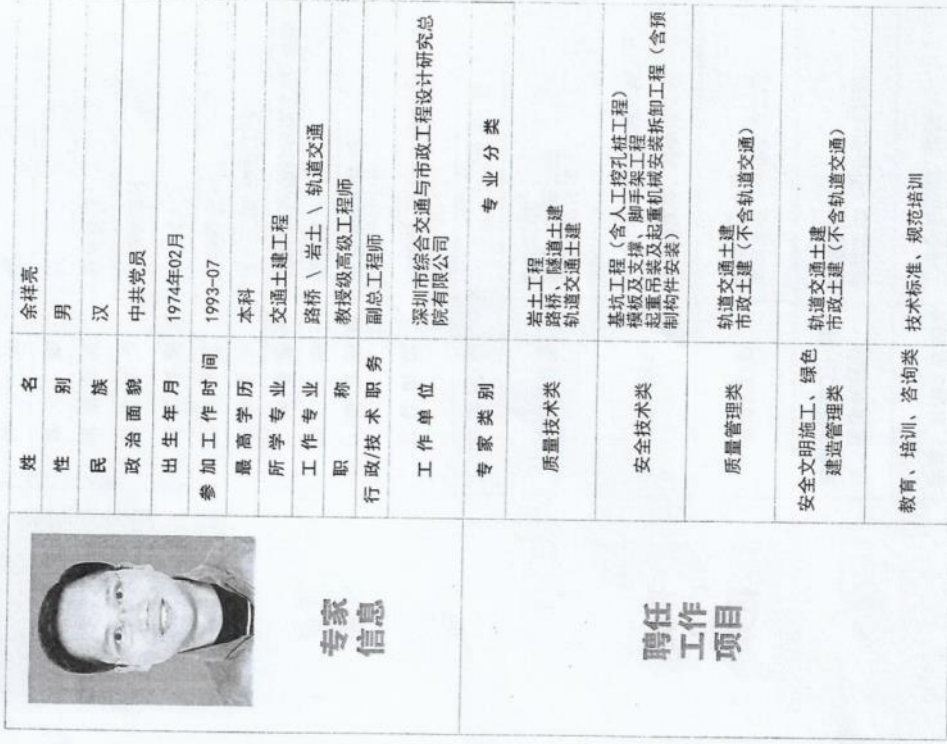 专家
信息
姓 名 余祥亮
性 别 男
民 族 汉
政治面貌 中共党员
出生年月 1974年02月
参加工作时间 1993-07
最高学历 本科
所学专业 交通土建工程
工作专业 路桥 \ 岩土 \ 轨道交通
职 称 教授级高级工程师
行政/技术职务 副总工程师
工作单位 深圳市综合交通与市政工程设计研究总
院有限公司
聘任
工作
项目
专家类别 专业分类
质量技术类 岩土工程
路桥、隧道土建
轨道交通土建
安全技术类 基坑工程（含人工挖孔桩工程）
模板及支撑、脚手架工程
起重吊装及起重机械安装拆卸工程（含预
制构件安装）
质量管理类 轨道交通土建
市政土建（不含轨道交通）
安全文明施工、绿色
建造管理类 轨道交通土建
市政土建（不含轨道交通）
教育、培训、咨询类 技术标准、规范培训